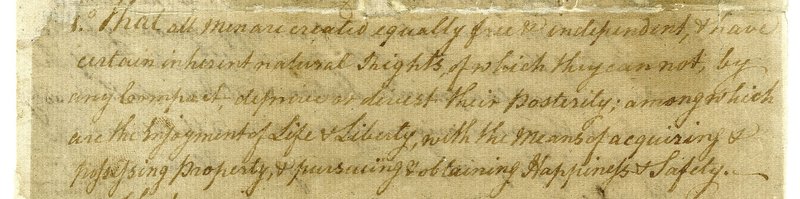 1.º That all men are created equally free & independent, & have
certain inherent natural Rights, of which they can not, by
any Compact, deprive or divest their Posterity; among which
are the Enjoyment of Life & Liberty, with the Means of acquiring &
possessing Property, & pursuing & obtaining Happiness & Safety.